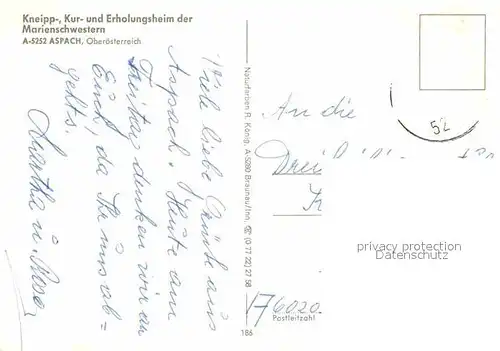 Kneipp-, Kur- und Erholungsheim der
Marienschwestern
A-5252 ASPACH, Oberösterreich
Viele liebe Grüße aus
Aspach. Heute am
Freitag denken wir an
Euch, da Ihr uns ab=
gehts.
Martha u. Rosa
Naturfarben R. König, A-5280 Braunau/Inn, (0 77 22) 27 58
186
An die
52
privacy protection
Datenschutz
A 6020
Postleitzahl